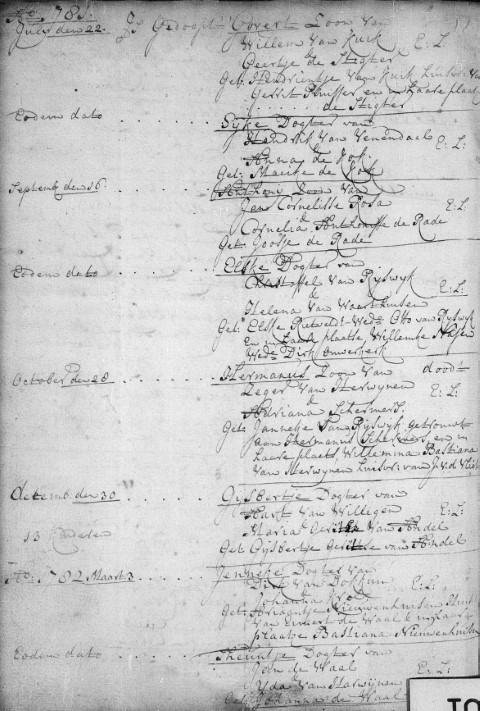 Ao. 1781.
July den 22. Is Gedoopt Govert Zoon van
Willem van Kuik E: L:
Geertje de Stigter
Get: Hendrientje van Kuik huisv: van
Gerrit en in haare plaats
de Stigter
Eodem dato Sijke Dogter van
Hendrik van Venendaal E: L:
&
Anna de Kok.
Get: Maaike de Kok
Septemb den 16. Anthoni Zoon van
Jan Cornelisse Rosa
& E: L
Cornelia Anthonisse de Rade
Get: Goosje de Rade
Eodem dato Elske Dogter van
Christoffel van Rijswyk
& E: L:
Helena van Waarthuisen
Get: Elske Rietvelt Wede Otto van Rijswyk
en in haare plaatse Willemke
Wede Dirk Onwerkerk
October den 28. Hermanus Zoon van doodt
Leger van Herwynen
& E: L:
Adriana Schermers.
Get: Janneke van Rijswyk getrouwt
aan Hermanus Schermers en in
haare plaats Willemina Bastiana
van Herwynen huisv: van J: v: d: Vliet
Decemb. den 30 Gijsbertje Dogter van
Hart van Willegen
& E: L:
Maria Geritse van Andel
13 Kinderen Get: Gysbertje Geritse van Andel
Ao: 1782 Maart 3. Jenneke Dogter van
Dirk van Dokkum
& E: L:
Johanna Krol
Get: Ariaantje Nieuwenhuisen Huisv
van Evert de Waal & in haar
plaatse Bastiana Nieuwenhuisen
Eodem dato Theuntje Dogter van
Jan de Waal
& E: L:
Yda van Herwynen
Get: Johanna de Waal
TO